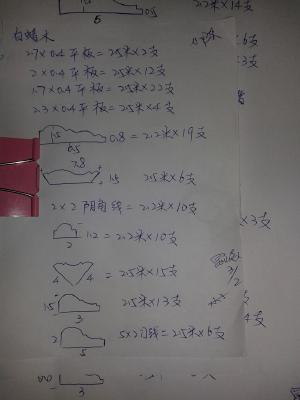 5
0.5
2.2米×14支
白蜡木
2.7×0.4平板=2.5米×2支
2×0.4平板=2.5米×12支
1.7×0.4平板=2.5米×22支
2.3×0.4平板=2.5米×4支
×6支
×3支
1.5 6.5 0.8=2.2米×19支
7.8 1.5 2.5米×6支
2×2阴角线=2.2米×10支
×3支
2 1.2=2.2米×10支
4 4=2.5米×15支
3/2
1.5 3 2.5米×13支
支
4支
2 5 5×2门线=2.5米×6支
3